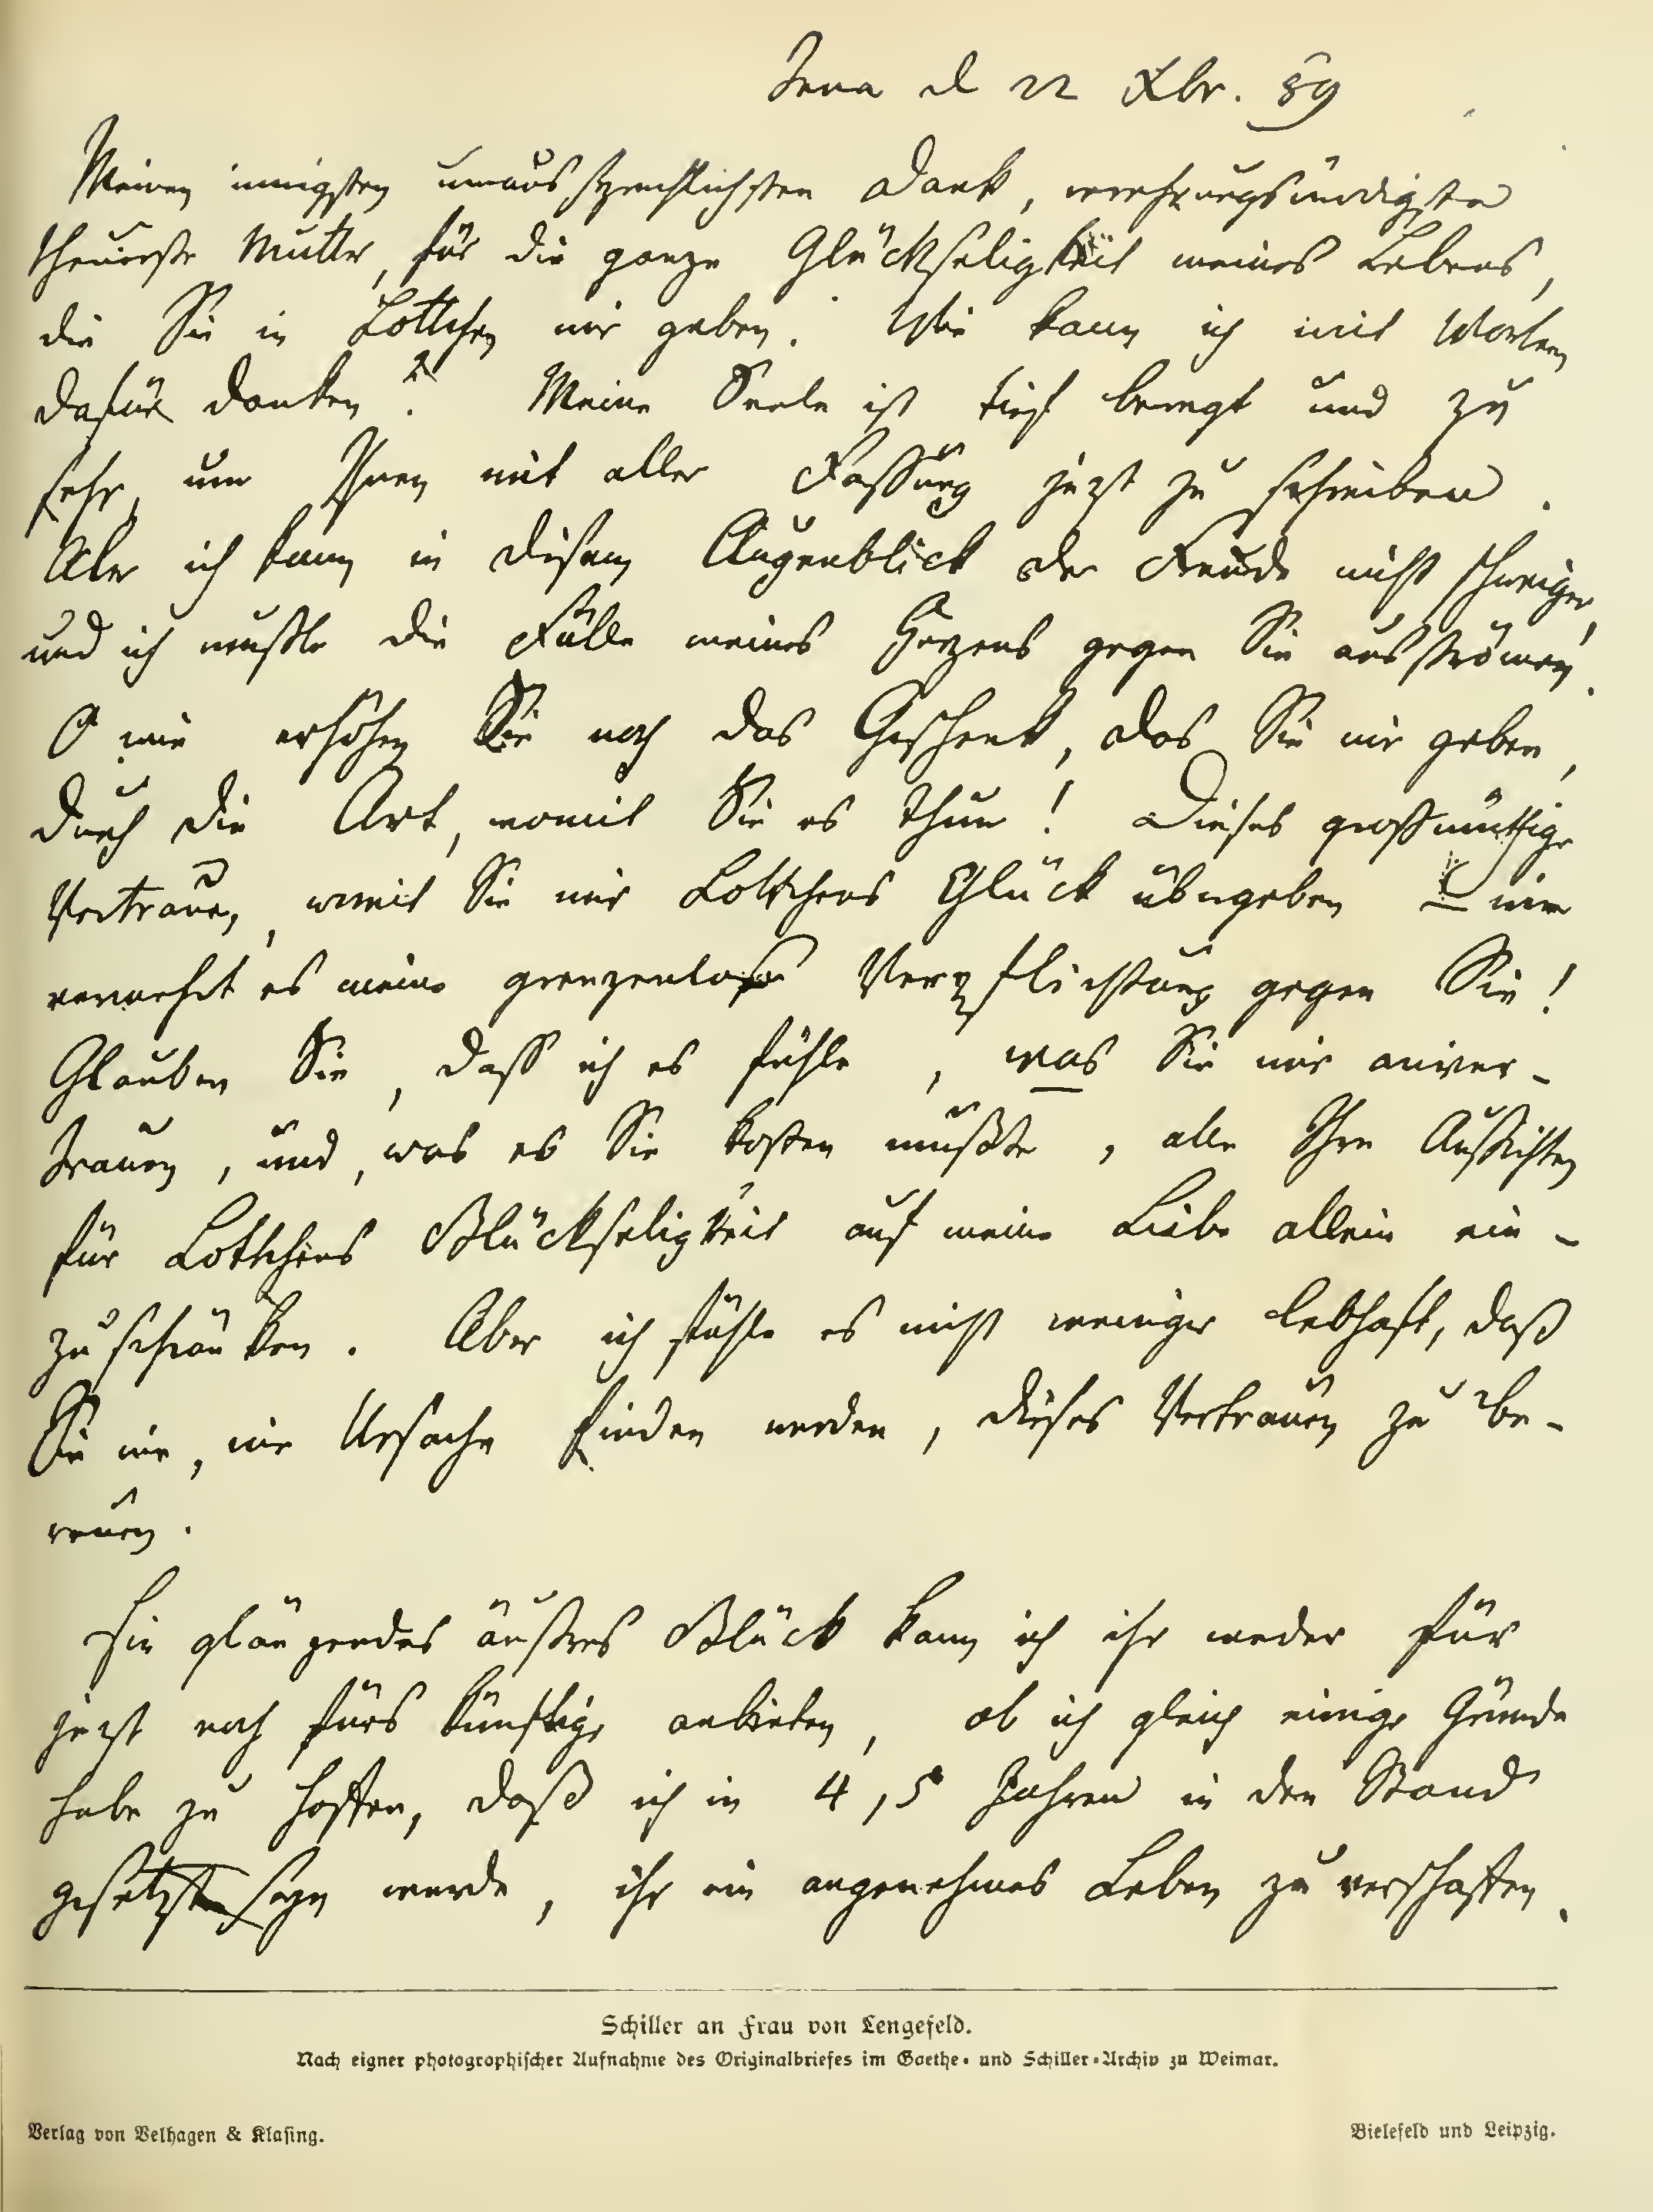 Jena d 22 Xbr. 89
Meinen innigsten unaussprechlichsten Dank, verehrungswürdigste
theuerste Mutter, für die ganze Glückseligkeit meines Lebens,
die Sie in Lottchen mir geben. Wie kann ich mit Worten
dafür danken? Meine Seele ist tief bewegt und zu
sehr, um Ihnen mit aller Fassung jezt zu schreiben.
Aber ich kann in diesem Augenblick der Freude nicht schweigen,
und ich mußte die Fülle meines Herzens gegen Sie ausströmen.
O wie erhöhen Sie noch das Geschenk, das Sie mir geben,
durch die Art, womit Sie es thun! Dieses großmüthige
Vertrauen, womit Sie mir Lottchens Glück übergeben – wie
vermehrt es meine grenzenlose Verpflichtung gegen Sie!
Glauben Sie, dass ich es fühle, was Sie mir anver-
trauen, und, was es Sie kosten mußte, alle Ihre Aussichten
für Lottchens Glückseligkeit auf meine Liebe allein ein-
zuschränken. Aber ich fühle es nicht weniger lebhaft, daß
Sie nie, nie Ursache finden werden, dieses Vertrauen zu be-
reuen.
Ein glänzendes äußres Glück kann ich ihr weder für
jezt noch fürs künftige anbieten, ob ich gleich einige Gründe
habe zu hoffen, daß ich in 4, 5 Jahren in den Stand
gesetzt seyn werde, ihr ein angenehmes Leben zu verschaffen.
Schiller an Frau von Lengefeld.
Nach eigner photographischer Aufnahme des Originalbriefes im Goethe- und Schiller-Archiv zu Weimar.
Verlag von Velhagen & Klasing.
Bielefeld und Leipzig.